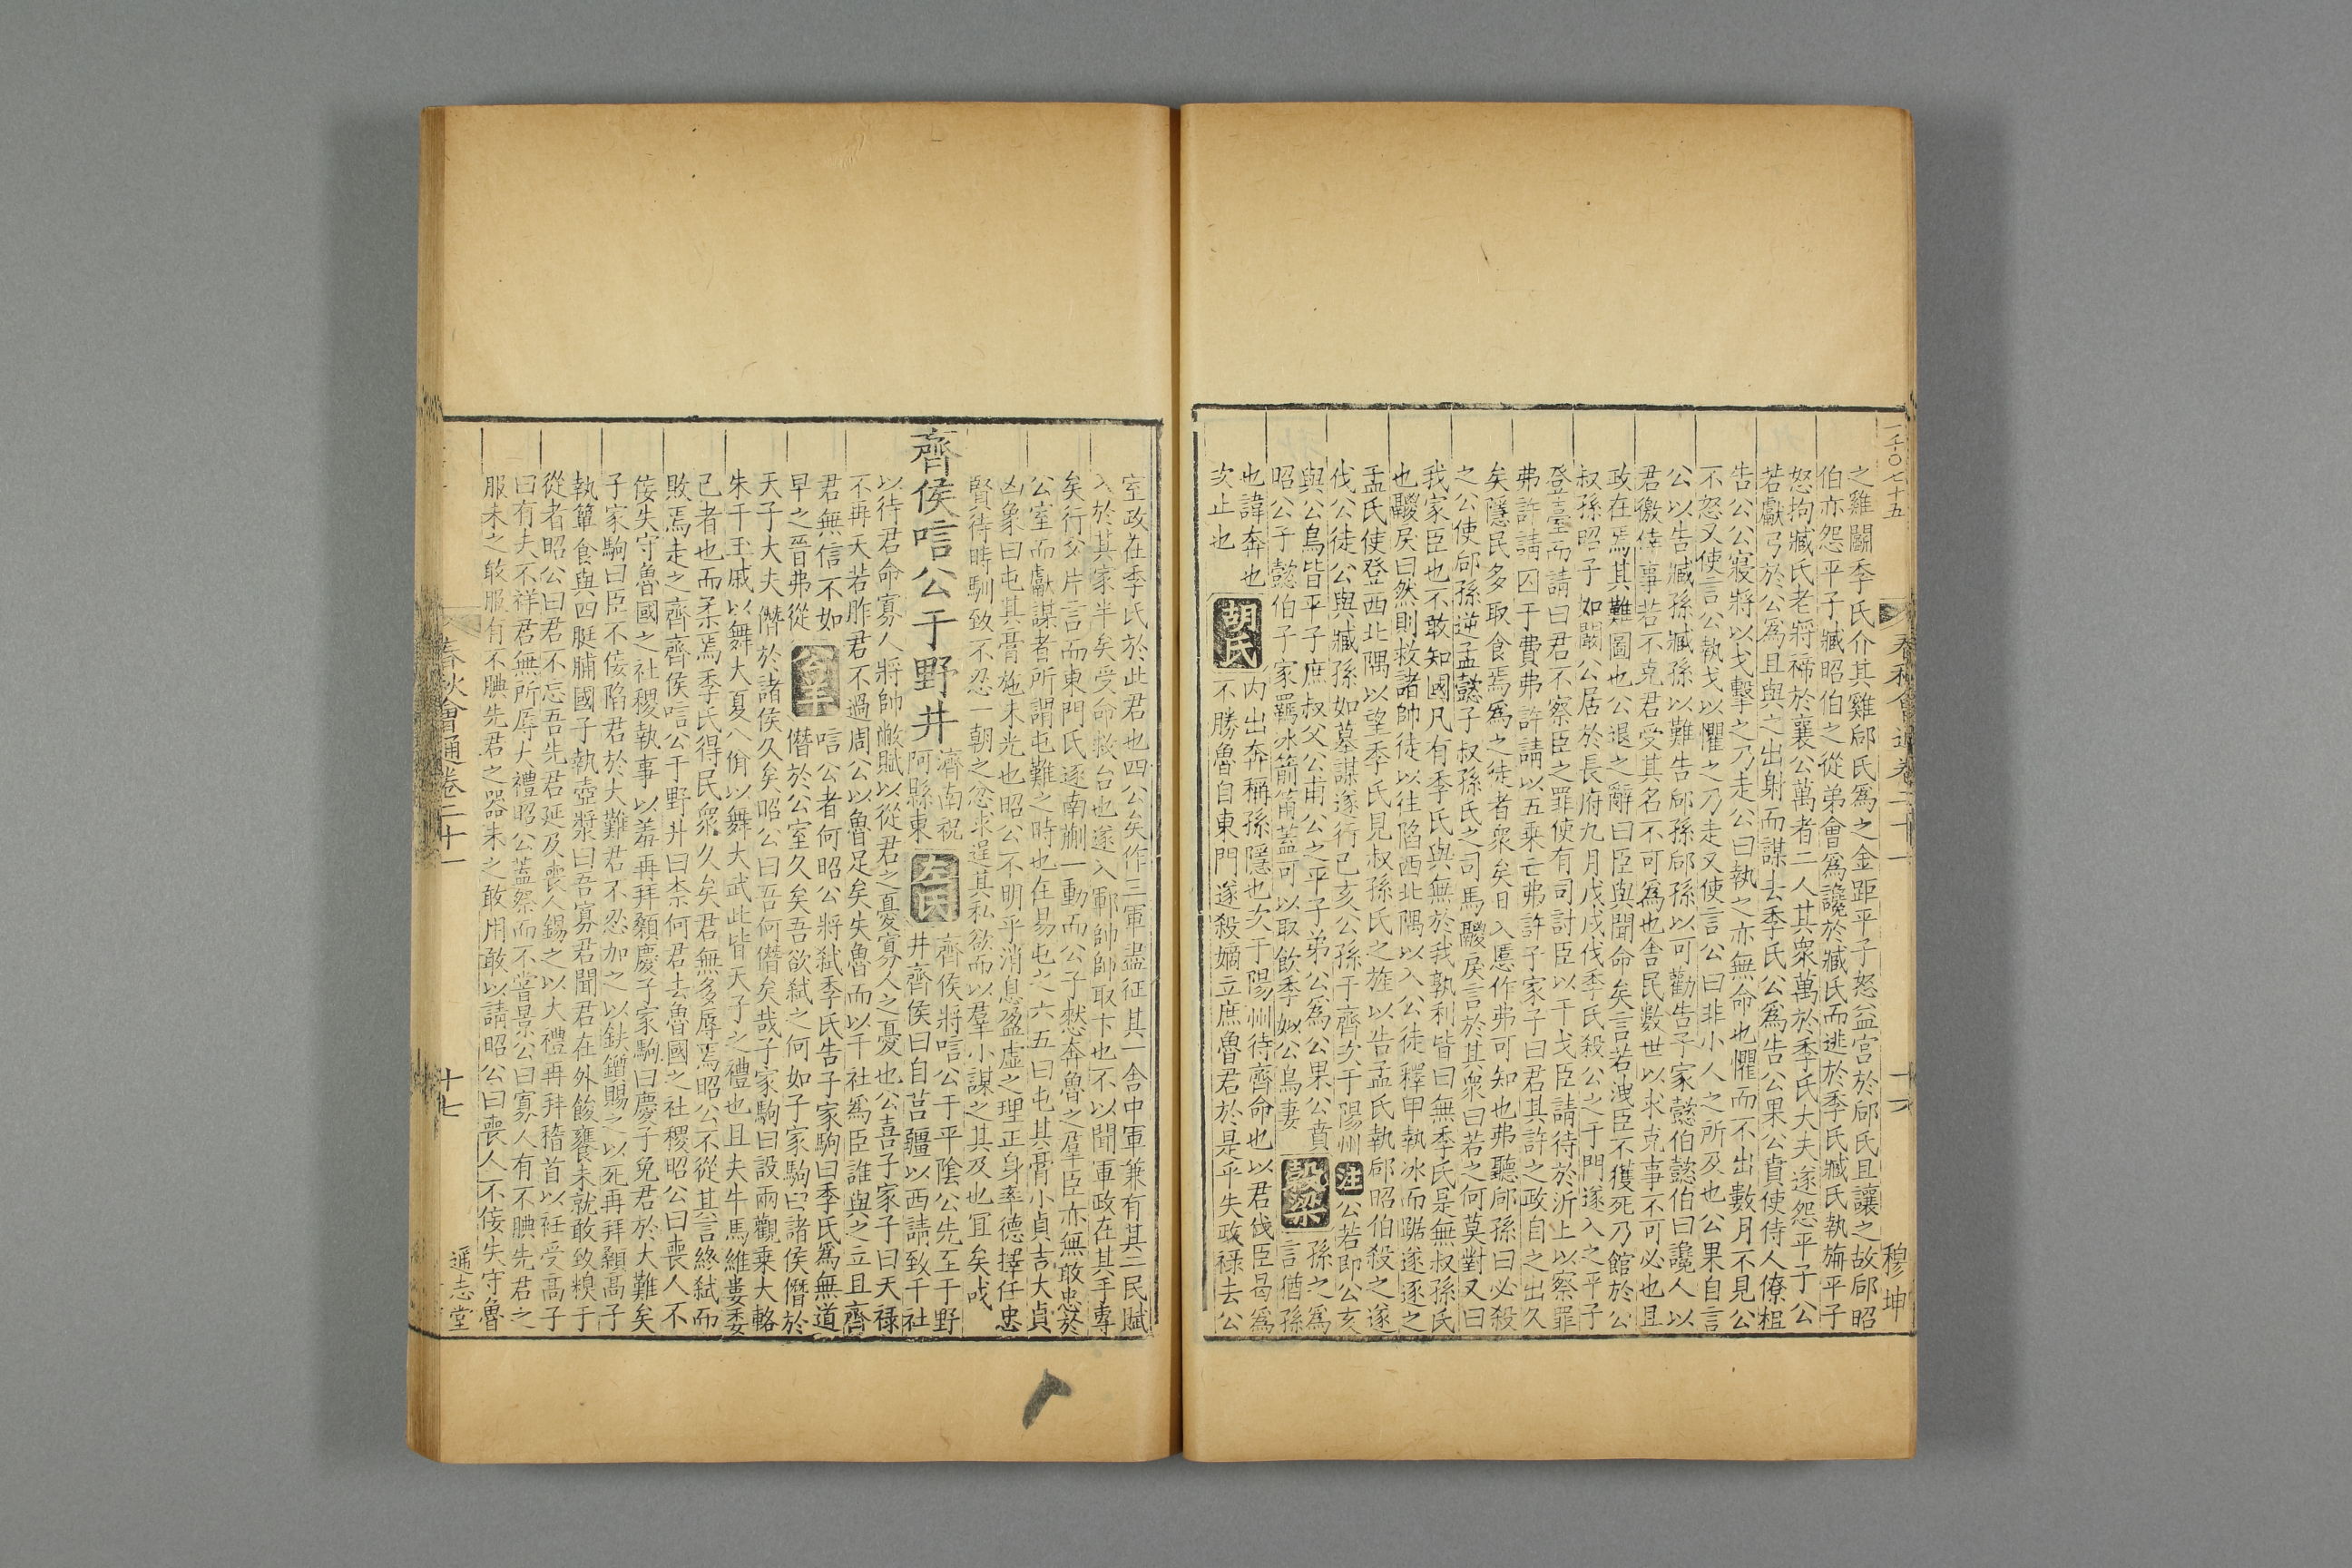 一千〇七十五
春秋會通卷二十一 十六 穆坤
之雞鬬季氏介其雞郈氏爲之金距平子怒益宮於郈氏且讓之故郈昭
伯亦怨平子臧昭伯之從弟會爲讒於臧氏而逃於季氏臧氏執旃平子
怒拘臧氏老將禘於襄公萬者二人其衆萬於季氏大夫遂怨平子公
若獻弓於公爲且與之出射而謀去季氏公爲告公果公賁使侍人僚柤
告公公寢將以戈擊之乃走公曰執之亦無命也懼而不出數月不見公
不怒又使言公執戈以懼之乃走又使言公曰非小人之所及也公果自言
公以告臧孫臧孫以難告郈孫郈孫以可勸告子家懿伯懿伯曰讒人以
君徼倖事若不克君受其名不可爲也舍民數世以求克事不可必也且
政在焉其難圖也公退之辭曰臣與聞命矣言若洩臣不獲死乃館於公
叔孫昭子如闞公居於長府九月戊戌伐季氏殺公之于門遂入之平子
登臺而請曰君不察臣之罪使有司討臣以干戈臣請待於沂上以察罪
弗許請囚于費弗許請以五乘亡弗許子家子曰君其許之政自之出久
矣隱民多取食焉爲之徒者衆矣日入慝作弗可知也弗聽郈孫曰必殺
之公使郈孫逆孟懿子叔孫氏之司馬鬷戾言於其衆曰若之何莫對又曰
我家臣也不敢知國凡有季氏與無於我孰利皆曰無季氏是無叔孫氏
也鬷戾曰然則救諸帥徒以往陷西北隅以入公徒釋甲執冰而踞遂逐之
孟氏使登西北隅以望季氏見叔孫氏之旌以告孟氏執郈昭伯殺之遂
伐公徒公與臧孫如墓謀遂行己亥公孫于齊次于陽州 注 公若即公亥
與公鳥皆平子庶叔父公甫公之平子弟公爲公果公賁
昭公子懿伯子家羈冰箭筩蓋可以取飲季姒公鳥妻
穀梁
孫之爲
言猶孫
也諱奔也
次止也
胡氏
內出奔稱孫隱也次于陽州待齊命也以君伐臣曷爲
不勝魯自東門遂殺嫡立庶魯君於是乎失政祿去公
室政在季氏於此君也四公矣作三軍盡征其一舍中軍兼有其二民賦
入於其家半矣受命救台也遂入鄆帥師取卞也不以聞軍政在其手專
矣行父片言而東門氏逐南蒯一動而公子憖奔魯之羣臣亦無敢忠於
公室而獻謀者所謂屯難之時也在易屯之六五曰屯其膏小貞吉大貞
凶象曰屯其膏施未光也昭公不明乎消息盈虛之理正身率德擇任忠
賢待時馴致不忍一朝之忿求逞其私欲而以羣小謀之其及也冝矣哉
齊侯唁公于野井
濟南祝
阿縣東
左氏
齊侯將唁公于平陰公先至于野
井齊侯曰自莒疆以西請致千社
以待君命寡人將帥敝賦以從君之憂寡人之憂也公喜子家子曰天祿
不再天若胙君不過周公以魯足矣失魯而以千社爲臣誰與之立且齊
君無信不如
早之晉弗從
公羊
唁公者何昭公將弒季氏告子家駒曰季氏爲無道
僭於公室久矣吾欲弒之何如子家駒曰諸侯僭於
天子大夫僭於諸侯久矣昭公曰吾何僭矣哉子家駒曰設兩觀乗大輅
朱干玉戚以舞大夏八佾以舞大武此皆天子之禮也且夫牛馬維婁委
己者也而柔焉季氏得民衆久矣君無多辱焉昭公不從其言終弒而
敗焉走之齊齊侯唁公于野井曰柰何君去魯國之社稷昭公曰喪人不
佞失守魯國之社稷執事以羞再拜顙慶子家駒曰慶子免君於大難矣
子家駒曰臣不佞陷君於大難君不忍加之以鈇鑕賜之以死再拜顙高子
執簞食與四脡脯國子執壺漿曰吾寡君聞君在外餕饔未就敢致糗于
從者昭公曰君不忘吾先君延及喪人錫之以大禮再拜稽首以衽受高子
曰有夫不祥君無所辱大禮昭公蓋祭而不嘗景公曰寡人有不腆先君之
服未之敢服有不腆先君之器未之敢用敢以請昭公曰喪人不佞失守魯
春秋會通卷二十一 十七 遜志堂